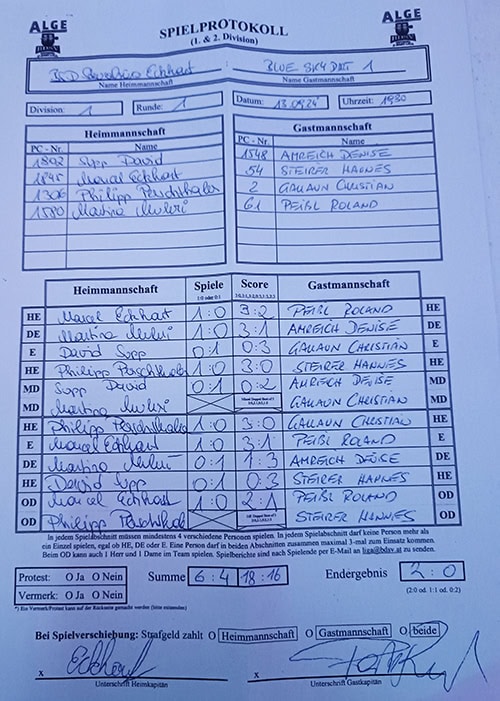 ALGE SPIELPROTOKOLL ALGE
(1. & 2. Division)
BSD Eckhart : BLUE SKY DART 1
Name Heimmannschaft Name Gastmannschaft
Division: 1 Runde: 1 Datum: 13.09.24 Uhrzeit: 1930
Heimmannschaft Gastmannschaft
PC - Nr. Name PC - Nr. Name
1892 Supp David 1548 AMREICH DENISE
Marcel Eckhart 54 STEIRER HANNES
1306 Philipp Paschthaler 2 GALLAUN CHRISTIAN
1580 Martina 61 PEIßL ROLAND
Heimmannschaft Spiele Score Gastmannschaft
1:0 oder 0:1
HE Marcel Eckhart 1:0 3:2 PEIßL ROLAND HE
DE Martina 1:0 3:1 AMREICH DENISE DE
E David Supp 0:1 0:3 GALLAUN CHRISTIAN E
HE Philipp Paschthaler 1:0 3:0 STEIRER HANNES HE
MD Supp David 0:1 0:2 AMREICH DENISE MD
MD Martina GALLAUN CHRISTIAN MD
HE Philipp Paschthaler 1:0 3:0 GALLAUN CHRISTIAN HE
E Marcel Eckhart 1:0 3:1 PEIßL ROLAND E
DE Martina 0:1 1:3 AMREICH DENISE DE
HE David Supp 0:1 0:3 STEIRER HANNES HE
OD Marcel Eckhart 1:0 2:1 PEIßL ROLAND OD
OD Philipp STEIRER HANNES OD
In jedem Spielabschnitt müssen mindestens 4 verschiedene Personen spielen. In jedem Spielabschnitt darf keine Person mehr als
ein Einzel spielen, egal ob HE, DE oder E. Eine Person darf in beiden Abschnitten zusammen maximal 3-mal zum Einsatz kommen.
Beim OD kann auch 1 Herr und 1 Dame im Team spielen. Spielberichte sind nach Spielende per E-Mail an liga@bdsv.at zu senden.
Protest: O Ja O Nein Summe 6:4 18:16 Endergebnis 2:0
Vermerk: O Ja O Nein (2:0 od. 1:1 od. 0:2)
*) Ein Vermerk/Protest kann auf der Rückseite gemacht werden
Bei Spielverschiebung: Strafgeld zahlt O Heimmannschaft O Gastmannschaft O beide
x Eckhart x
Unterschrift Heimkapitän Unterschrift Gastkapitän